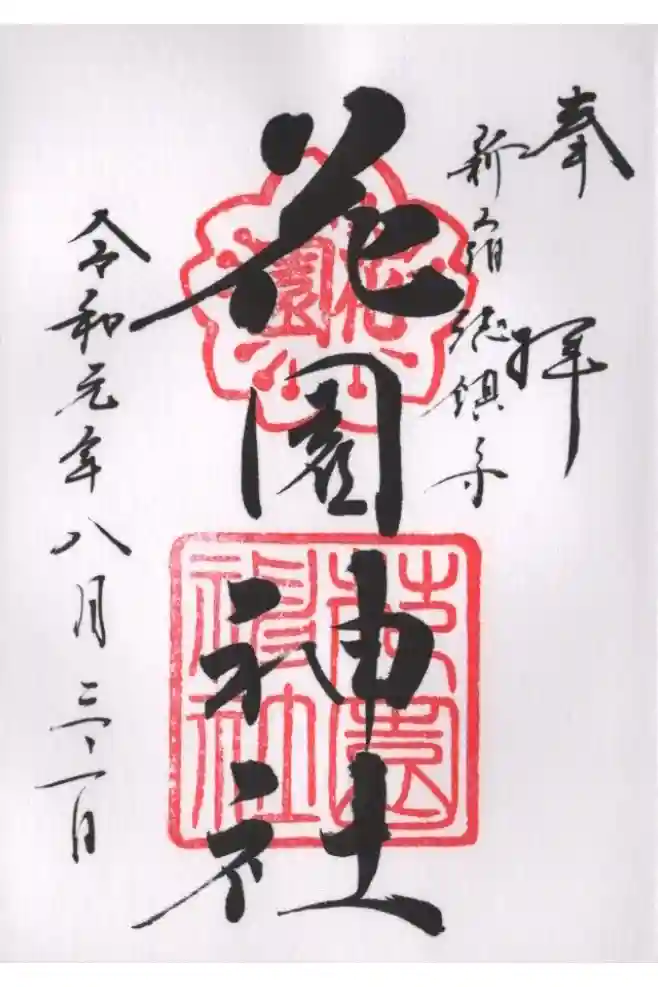 奉拝
新宿総鎮守
花園神社
花園
花園神社
令和元年八月三十一日